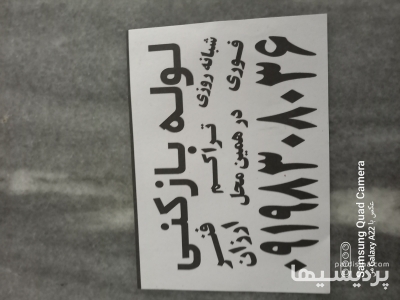 لوله بازکنی
شبانه روزی تراکم فنر
فوری در همین محل ارزان
۰۹۱۹۸۳۰۸۰۳۶
Samsung Quad Camera
عکس با Galaxy A22
پردیسیها